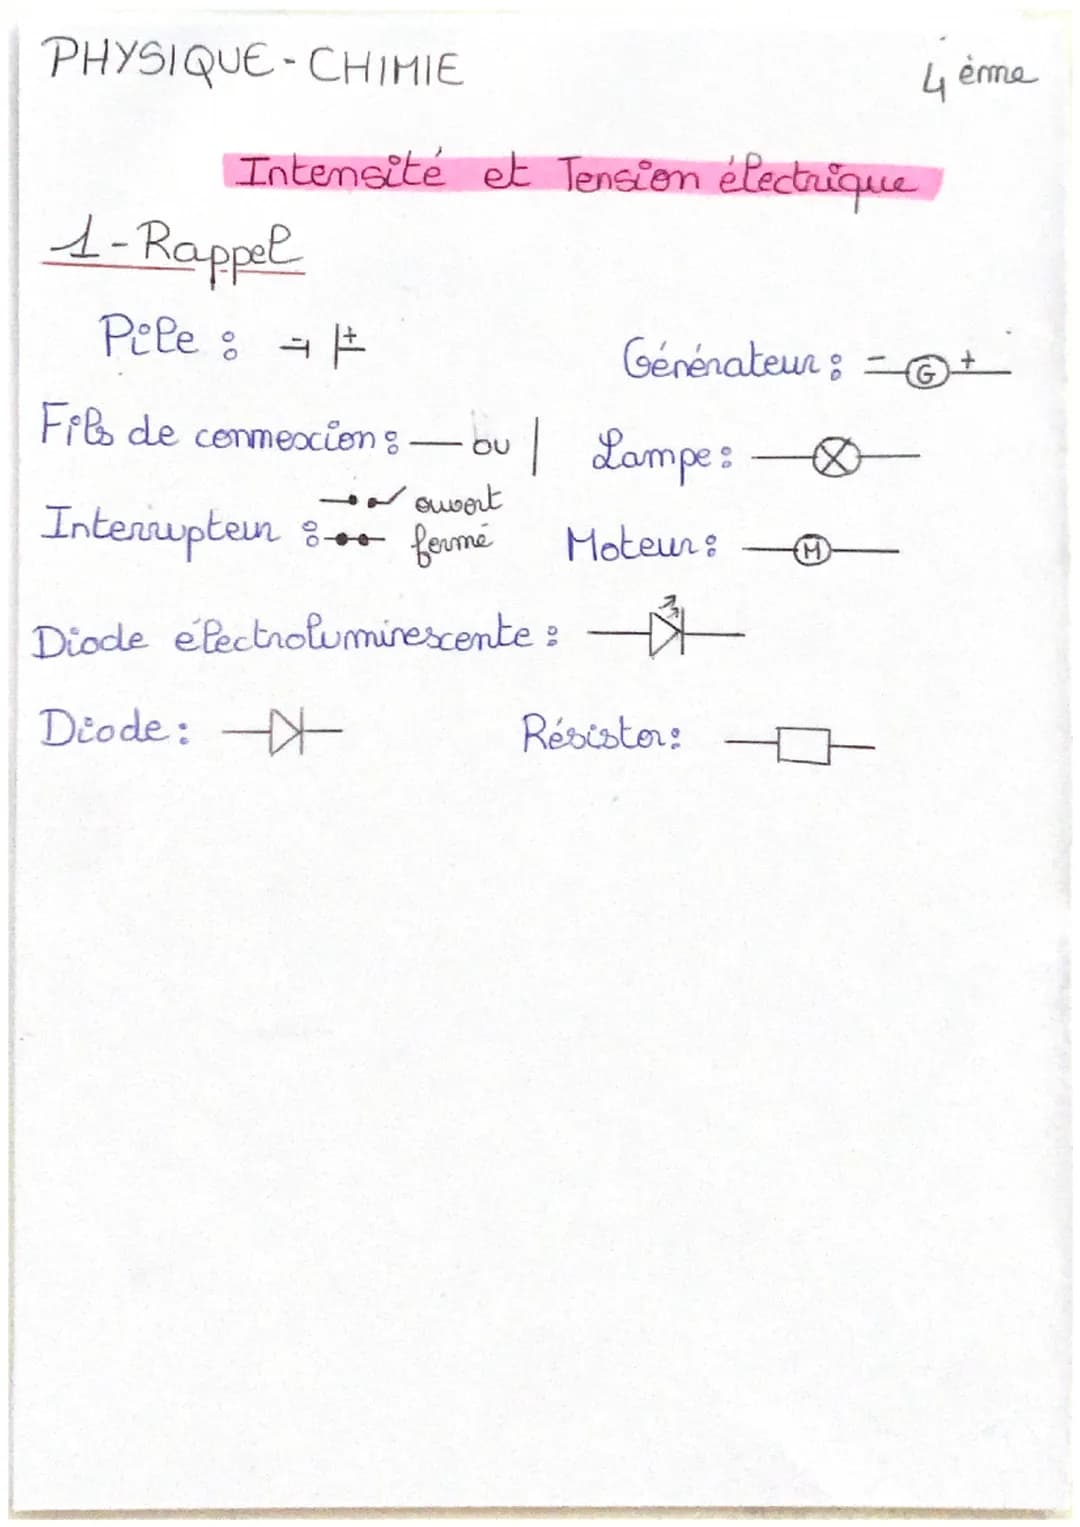 PHYSIQUE - CHIMIE 4 ème
Intensité et Tension électrique
1 - Rappel
Pile : - +
Générateur : - G +
Fils de connexion : ou
Lampe :
Interrupteur : ouvert
fermé
Moteur : M
Diode électroluminescente :
Diode :
Résistor :